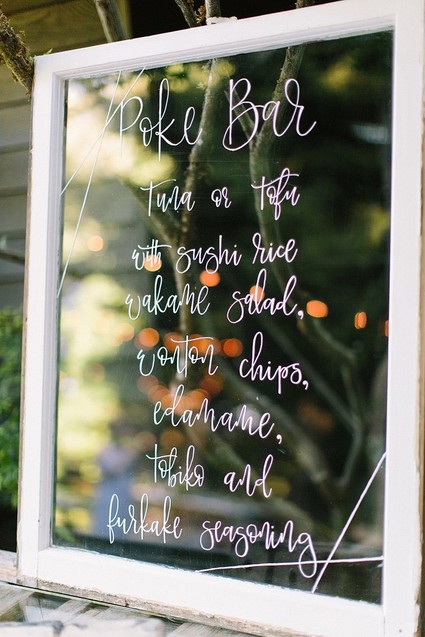 Poke Bar
Tuna or Tofu
with sushi rice
wakame salad,
wonton chips,
edamame,
tobiko and
furkake seasoning